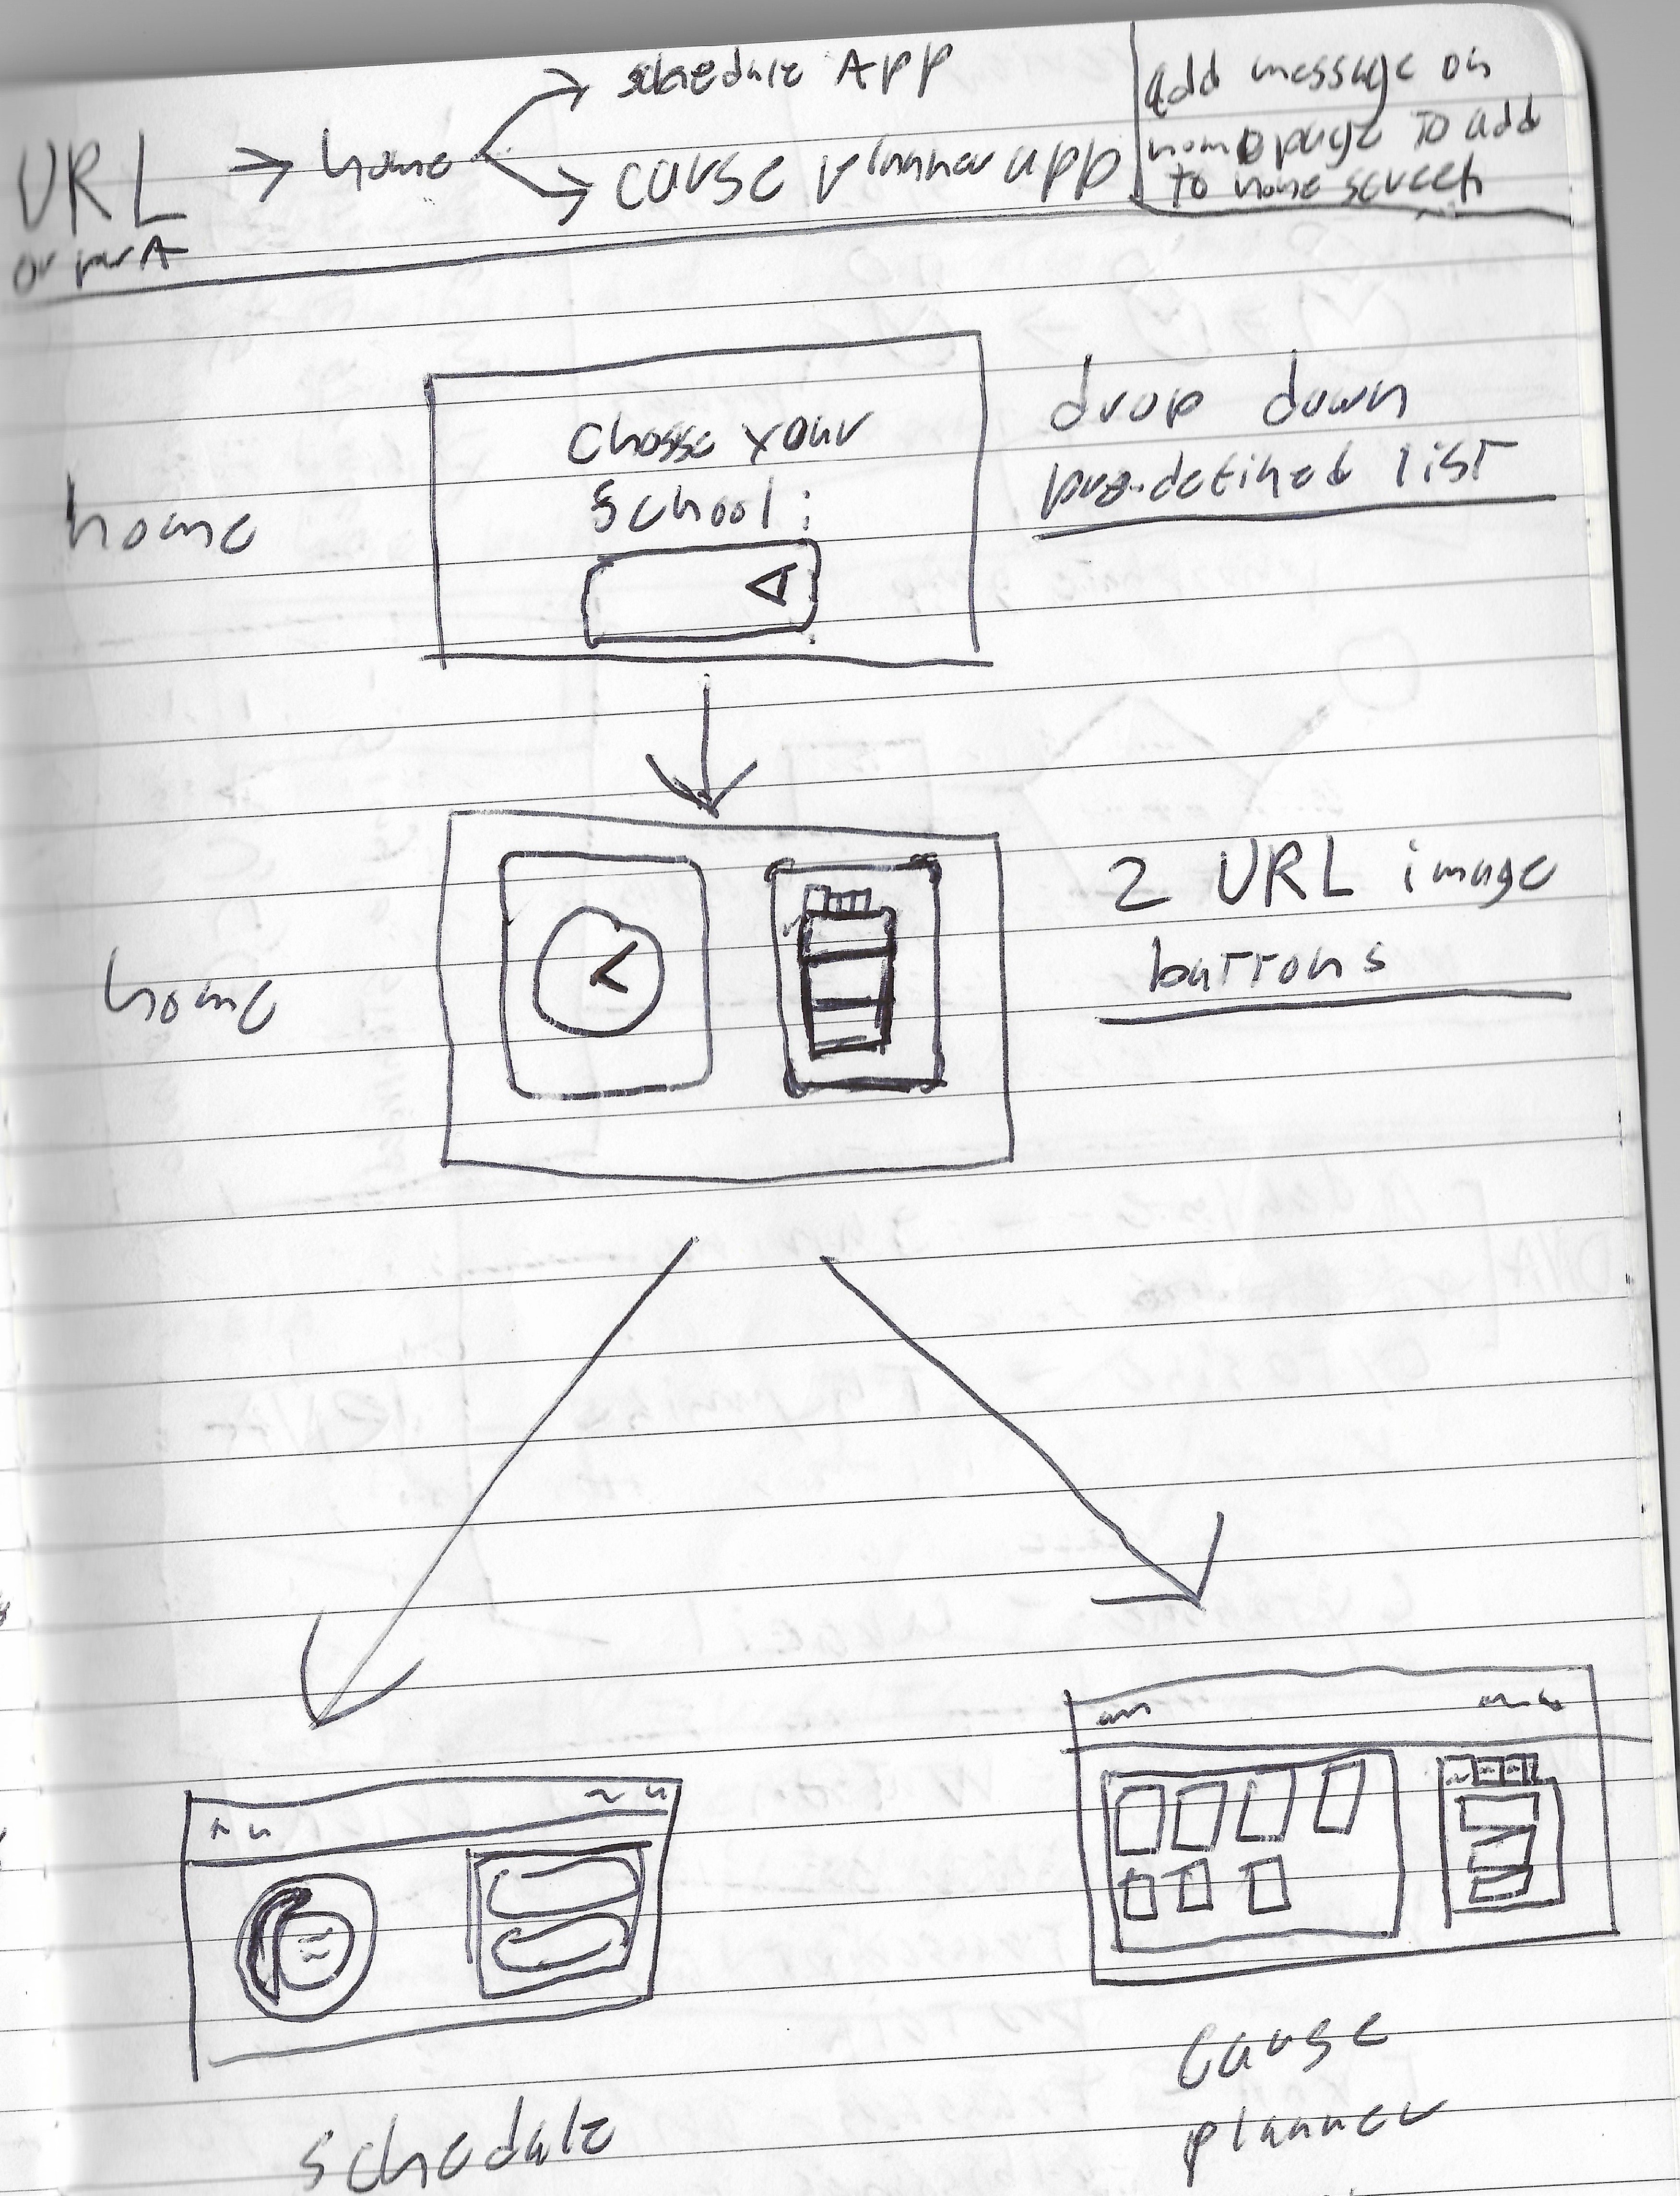 URL → home → schedule App
→ causc planner app
or pwA
add message on
home page to add
to home screen
home
chosse your
school:
drop down
pre-defined list
home
2 URL image
buttons
schedule
cause
planner